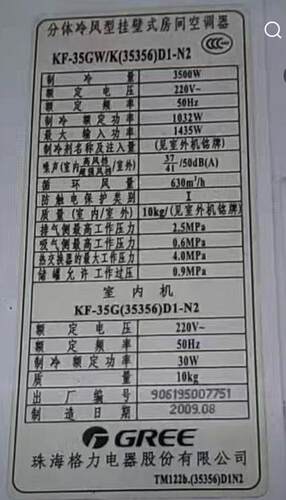 分体冷风型挂壁式房间空调器
KF-35GW/K(35356)D1-N2
制冷量 3500W
额定电压 220V~
额定频率 50Hz
制冷额定功率 1032W
最大输入功率 1435W
制冷剂名称及注入量 (见室外机铭牌)
噪声(室内高风档/超强风档/室外) 37/41/50dB(A)
循环风量 630m³/h
防触电保护类别 I
质量(室内/室外) 10kg/(见室外机铭牌)
排气侧最高工作压力 2.5MPa
吸气侧最高工作压力 0.6MPa
热交换器的最大工作压力 4.0MPa
储罐允许工作过压 0.9MPa
室内机
KF-35G(35356)D1-N2
额定电压 220V~
额定频率 50Hz
制冷额定功率 30W
质量 10kg
出厂编号 906195007751
制造日期 2009.08
GREE
珠海格力电器股份有限公司
TM122b.(35356)D1N2